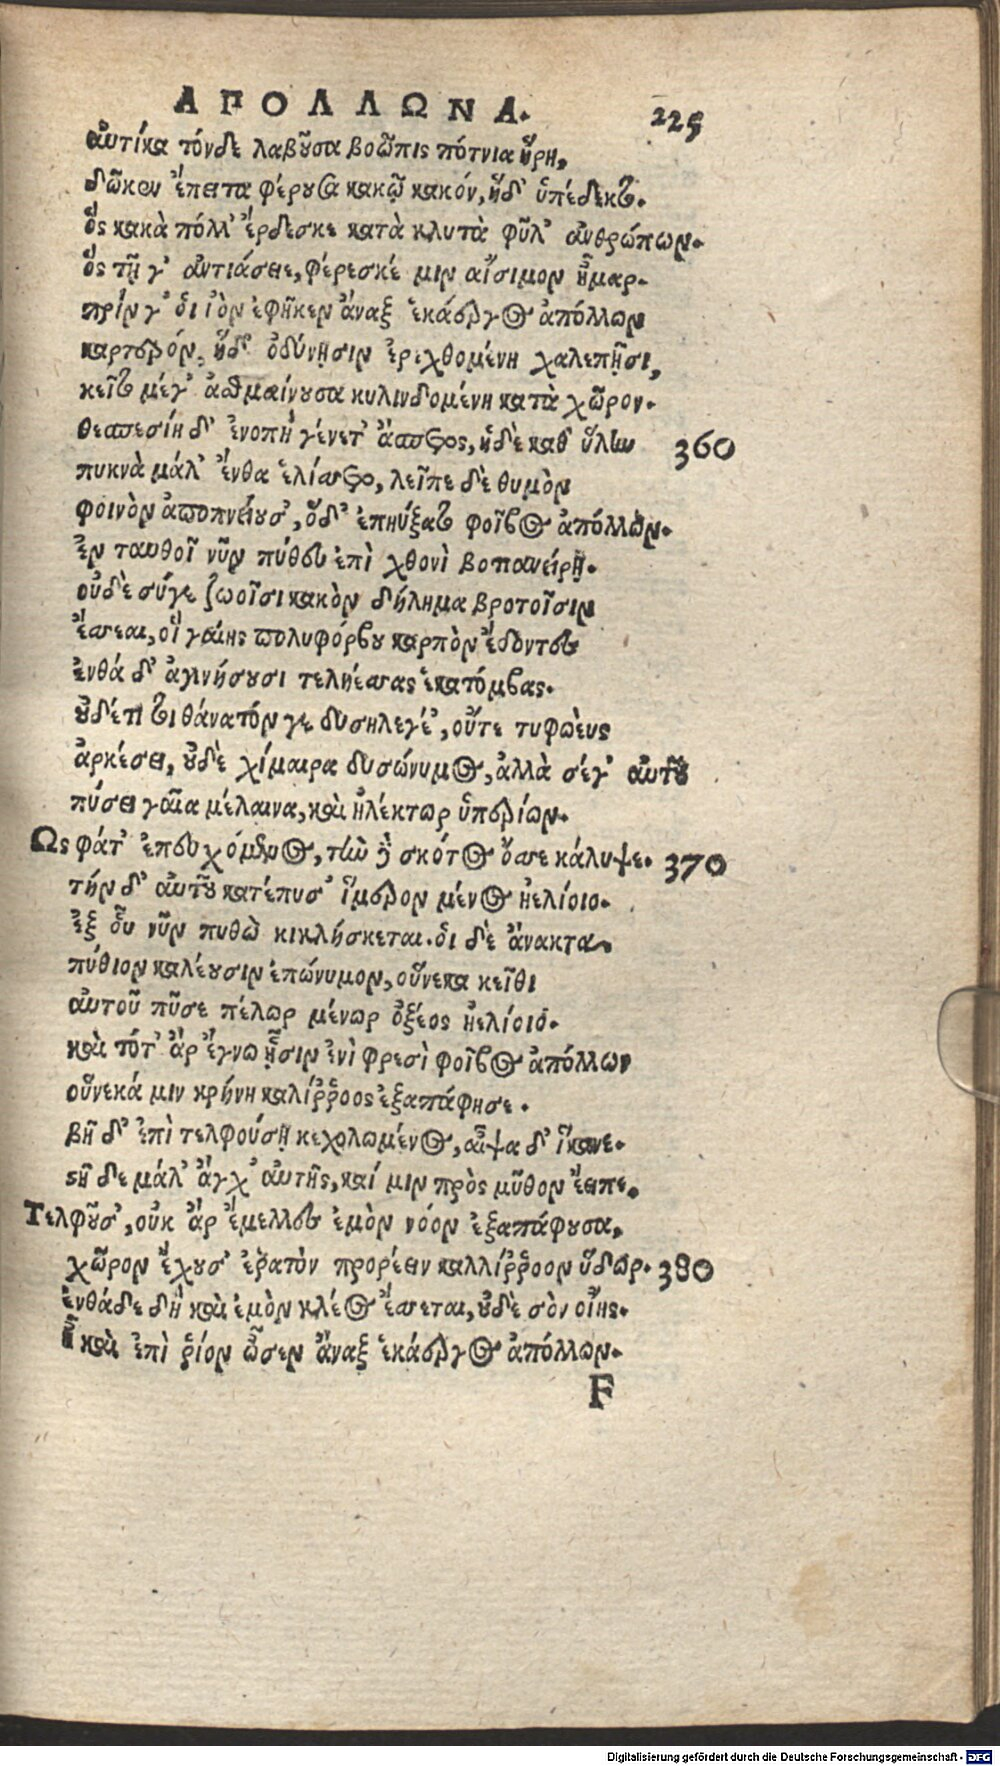 ΑΠΟΛΛΩΝΑ. 225
αὐτίκα τόνδε λαβοῦσα βοῶπις πότνια ἥρη,
δῶκεν ἔπειτα φέρουσα κακῷ κακόν, ἡδ' ὑπέδεκτο.
ὃς κακὰ πόλλ' ἔρδεσκε κατὰ κλυτὰ φῦλ' ἀνθρώπων.
ὃς τῇ γ' ἀντιάσειε, φέρεσκέ μιν αἴσιμον ἦμαρ.
πρίν γ' ὅι ἰὸν ἐφῆκεν ἄναξ ἑκάεργος ἀπόλλων
καρτερόν. ἡδ' ὀδύνῃσιν ἐρεχθομένη χαλεπῇσι,
κεῖτο μέγ' ἀσθμαίνουσα κυλινδομένη κατὰ χῶρον.
θεσπεσίη δ' ἐνοπὴ γένετ' ἄσπετος, ἡδὲ καθ' ὕλην 360
πυκνὰ μάλ' ἔνθα ἑλίσσετο, λεῖπε δὲ θυμὸν
φοινὸν ἀποπνείουσ', ὅδ' ἐπηύξατο φοῖβος ἀπόλλων.
ἐν ταυθοῖ νῦν πύθευ ἐπὶ χθονὶ βοτιανείρῃ.
οὐδὲ σύγε ζωοῖσι κακὸν δήλημα βροτοῖσιν
ἔσσεαι, οἳ γαίης πολυφόρβου καρπὸν ἔδοντες
ἐνθά δ' ἀγινήσουσι τεληέσσας ἑκατόμβας.
οὐδέ τί τοι θάνατόν γε δυσηλεγέ', οὔτε τυφωεὺς
ἀρκέσει, οὐδὲ χίμαιρα δυσώνυμος, ἀλλὰ σέγ' αὐτοῦ
πύσει γαῖα μέλαινα, καὶ ἠλέκτωρ ὑπερίων.
Ως φάτ' ἐπευχόμενος, τὴν δὲ σκότος ὄσσε κάλυψε. 370
τήν δ' αὐτοῦ κατέπυσ' ἵμερον μένος ἠελίοιο.
ἐξ οὗ νῦν πυθὼ κικλήσκεται. ὁι δὲ ἄνακτα,
πύθιον καλέουσιν ἐπώνυμον, οὕνεκα κεῖθι
αὐτοῦ πῦσε πέλωρ μένωρ ὀξέος ἠελίοιο.
καὶ τότ' ἄρ ἔγνω ᾗσιν ἐνὶ φρεσὶ φοῖβος ἀπόλλων
οὕνεκά μιν κρήνη καλίῤῥοος ἐξαπάφησε.
βῆ δ' ἐπὶ τελφούσῃ κεχολωμένος, αἶψα δ' ἵκανε.
στῆ δε μάλ' ἄγχ' αὐτῆς, καί μιν πρὸς μῦθον ἔειπε.
Τελφοῦσ', οὐκ ἄρ ἔμελλες ἐμὸν νόον ἐξαπάφουσα,
χῶρον ἔχουσ' ἐρατὸν προρέειν καλλίῤῥοον ὕδωρ. 380
ἐνθάδε δὴ καὶ ἐμὸν κλέος ἔσσεται, οὐδὲ σὸν οἴης.
ἦ καὶ ἐπὶ ῥίον ὦσεν ἄναξ ἑκάεργος ἀπόλλων.
F
Digitalisierung gefördert durch die Deutsche Forschungsgemeinschaft - DFG